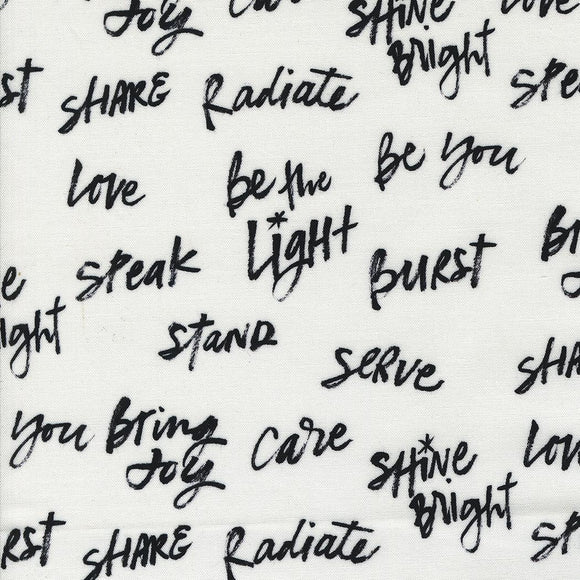 Joy Care SHINE Love
Bright
st SHARE Radiate Speak
Love Be the Be You
Light
Speak BURST Br
e
ight STAND SERVE SHA
You Bring Care SHINE Love
Joy Bright
RST SHARE Radiate Spe